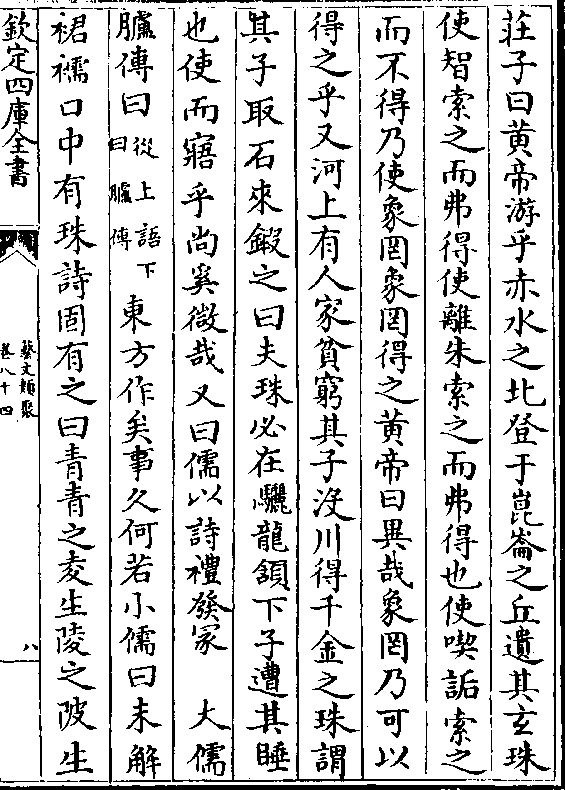 莊子曰黄帝游乎赤水之北登于崑崙之丘遺其玄珠
使智索之而弗得使離朱索之而弗得也使喫詬索之
而不得乃使象罔象罔得之黄帝曰異哉象罔乃可以
得之乎又河上有人家貧窮其子没川得千金之珠謂
其子取石來鍜之曰夫珠必在驪龍頷下子遭其睡
也使而寤乎尚奚微哉又曰儒以詩禮發冢 大儒
臚傳曰從上語下曰臚傳 東方作矣事久何若小儒曰未解
裙襦口中有珠詩固有之曰青青之麥生陵之陂生
欽定四庫全書
藝文類聚
卷八十四
八